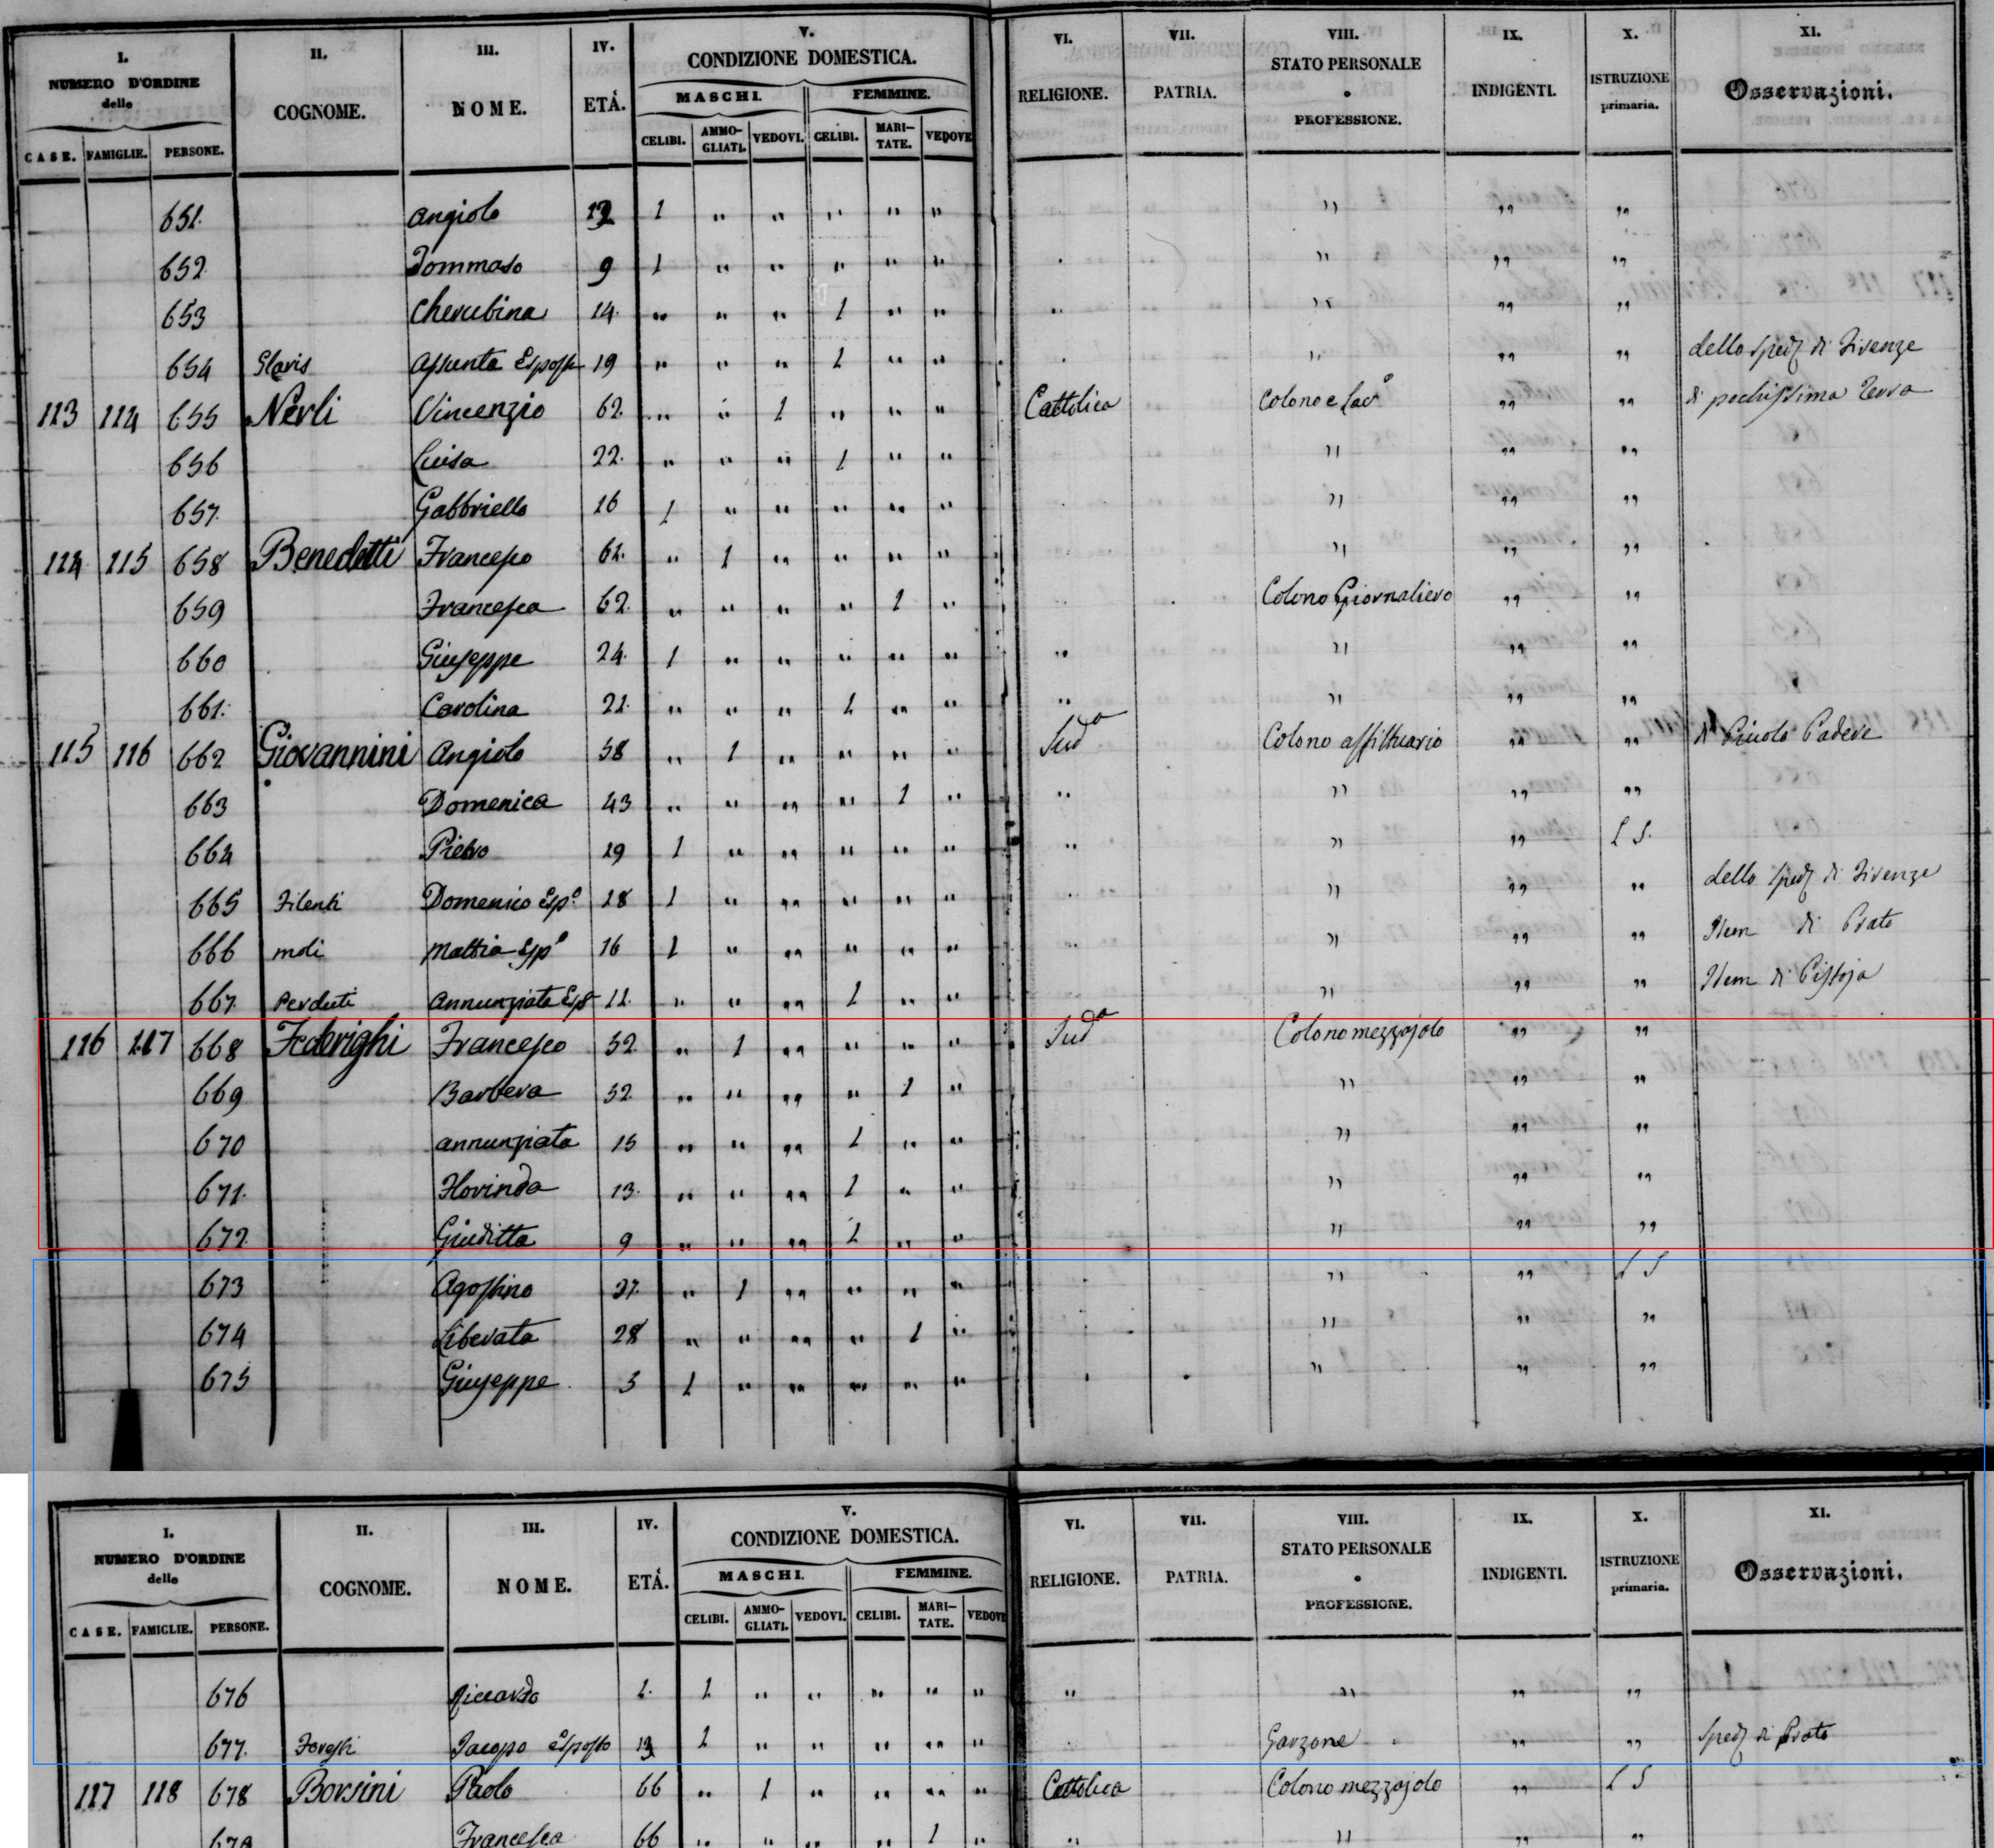 I. NUMERO D'ORDINE delle II. COGNOME. III. NOME. IV. ETÁ. V. CONDIZIONE DOMESTICA. VI. RELIGIONE. VII. PATRIA. VIII. STATO PERSONALE o PROFESSIONE. IX. INDIGENTI. X. ISTRUZIONE primaria. XI. Osservazioni.
MASCHI. FEMMINE.
CASE. FAMIGLIE. PERSONE. CELIBI. AMMOGLIATI. VEDOVI. CELIBI. MARITATE. VEDOVE
651. Angiolo 1 " " " " " " " "
652 Tommaso 9 1 " " " " " " " "
653 Cherubina 14. " " " 1 " " " " " "
654 Assunta Esposta 19 " " " 1 " " " " " dello Sped. di Firenze
113 114 655 Nerli Vincenzio 62. " " 1 " " " Cattolica Colono e Lav.o " " di pochissima Terra
656 Luisa 22. " " " 1 " " " " "
657. Gabbriello 16 1 " " " " " " " "
114 115 658 Benedetti Francesco 61. " 1 " " " " " " "
659 Francesca 62. " " " " 1 " Colono Giornaliero " "
660 Giuseppe 24. 1 " " " " " " " " "
661. Carolina 21. " " " 1 " " " " " "
115 116 662 Giovannini Angiolo 58 " 1 " " " " Sud.a Colono affittuario " " di Piccolo Podere
663 Domenica 43 " " " " 1 " " " " "
664 Pietro 19 1 " " " " " " " " L S.
665 Domenico Esp.o 18 1 " " " " " " " " dello Sped. di Firenze
666 Mattia Esp.o 16 1 " " " " " " " " Item di Prato
667. Perduti Annunziata Esp. 11. " " " 1 " " " " " Item di Pistoja
116 117 668 Federighi Francesco 52. " 1 " " " " Sud.a Colono mezzajolo " "
669 Barbera 52 " " " " 1 " " " "
670 Annunziata 15 " " " 1 " " " " "
671. Florinda 13. " " " 1 " " " " "
672 Giuditta 9 " " " 1 " " " " "
673 Agostino 37. " 1 " " " " " " L S
674 Liberata 28 " " " " 1 " " " "
675 Giuseppe 3 1 " " " " " " " "
I. NUMERO D'ORDINE delle II. COGNOME. III. NOME. IV. ETÁ. V. CONDIZIONE DOMESTICA. VI. RELIGIONE. VII. PATRIA. VIII. STATO PERSONALE o PROFESSIONE. IX. INDIGENTI. X. ISTRUZIONE primaria. XI. Osservazioni.
MASCHI. FEMMINE.
CASE. FAMIGLIE. PERSONE. CELIBI. AMMOGLIATI. VEDOVI. CELIBI. MARITATE. VEDOVE
676 Riccardo 1. 1 " " " " " " " " "
677. Jacopo Esposto 1 " " " " " Garzone " " Sped. di Prato
117 118 678 Borsini Paolo 66 " 1 " " " " Cattolica Colono mezzajolo " L S
679 Francesca 66 " " " " 1 " " " " "